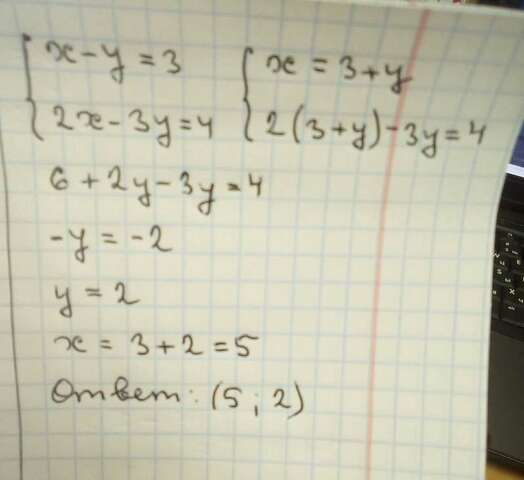 { x - y = 3 { x = 3 + y
2x - 3y = 4 2(3 + y) - 3y = 4
6 + 2y - 3y = 4
-y = -2
y = 2
x = 3 + 2 = 5
Ответ: (5 ; 2)